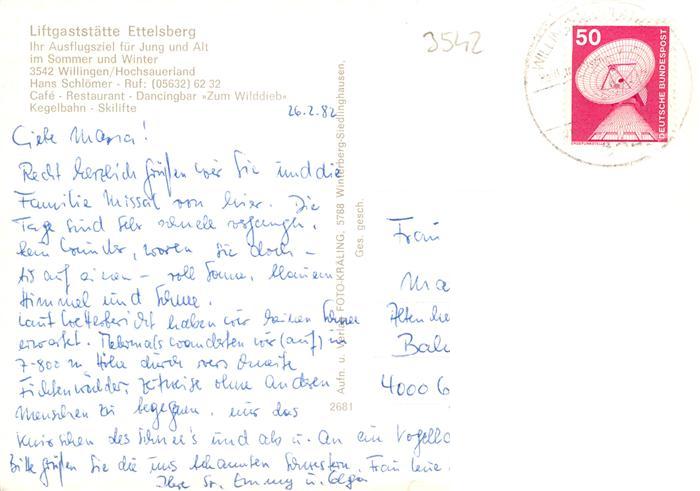 Liftgaststätte Ettelsberg
Ihr Ausflugsziel für Jung und Alt
im Sommer und Winter
3542 Willingen/Hochsauerland
Hans Schlömer - Ruf: (05632) 62 32
Café - Restaurant - Dancingbar »Zum Wilddieb«
Kegelbahn - Skilifte
3542
50
DEUTSCHE BUNDESPOST
ERDEFUNKSTELLE
26.2.82
Liebe Maria!
Recht herzlich grüßen wir Sie und die
Familie Missal von hier. Die
Tage sind sehr schnell vergangen,
kein Wunder, waren sie doch -
bis auf einen - voll Sonne, blauem
Himmel und Schnee.
Laut Wetterbericht haben wir keinen Schnee
erwartet. Mehrmals wanderten wir (auf) in
7-800 m Höhe durch verschneite
Fichtenwälder, zeitweise ohne anderen
Menschen zu begegnen, nur das
Knirschen des Schnee's und ab u. an ein
Bitte grüßen Sie die uns bekannten Schwestern, Frau
Ihre Sr. Emmy u. Olga
Aufn. u. Verlag: FOTO-KRALING, 5788 Winterberg-Siedlinghausen,
Ges. gesch.
2681
Frau
Ma
Alten
4000 6